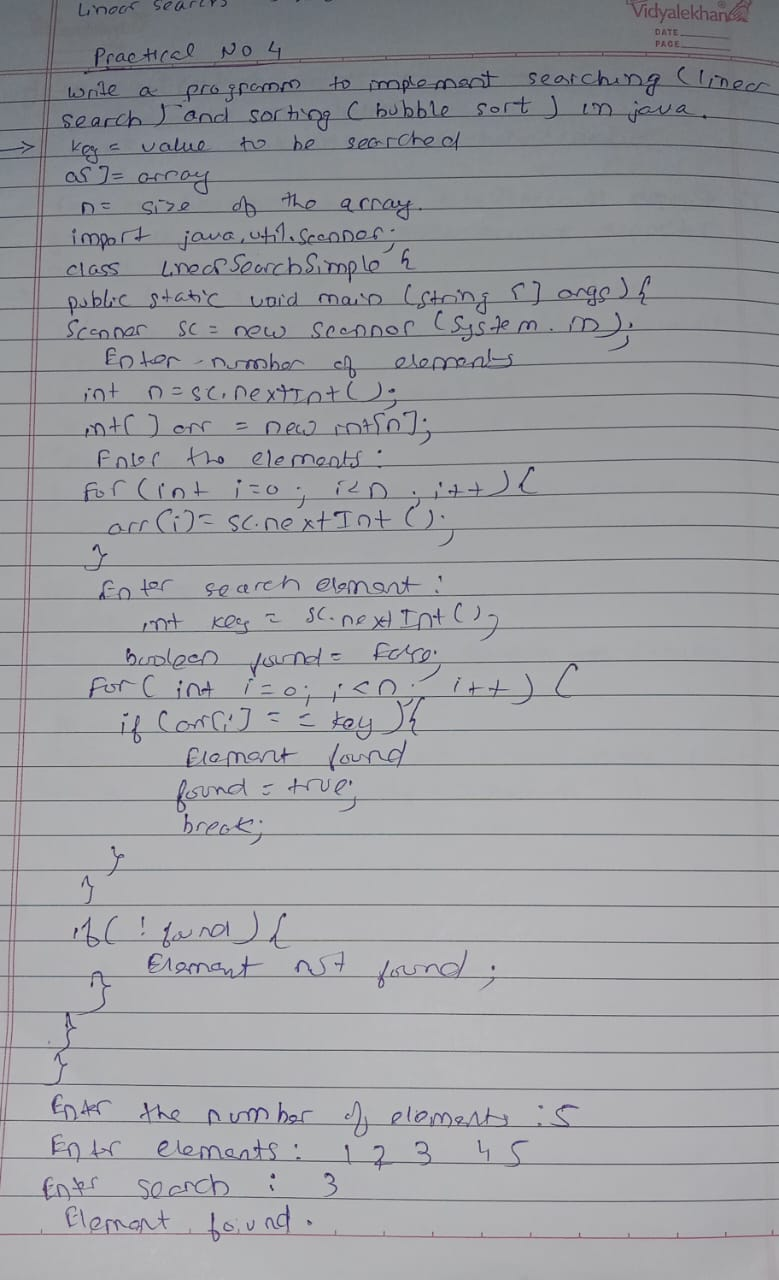 Linear Search
Vidyalekhan
DATE
PAGE
Practical No 4
Write a programm to implement searching (linear
search) and sorting (bubble sort) in java.
→ key = value to be searched
a[] = array
n = size of the array.
import java.util.Scanner;
class LinearSearchSimple {
public static void main (String [] args) {
Scanner sc = new Scanner (System.in);
Enter number of elements
int n = sc.nextInt();
int[] arr = new int[n];
Enter the elements :
for (int i=0 ; i<n ; i++) {
arr(i) = sc.nextInt ();
}
Enter search element :
int key = sc.nextInt();
boolean found = false;
For ( int i=0; i<n ; i++ ) {
if (arr[i] == key ) {
Element found
found = true;
break;
}
}
if ( ! found ) {
Element not found ;
}
}
}
Enter the number of elements : 5
Enter elements : 1 2 3 4 5
Enter search : 3
Element found .